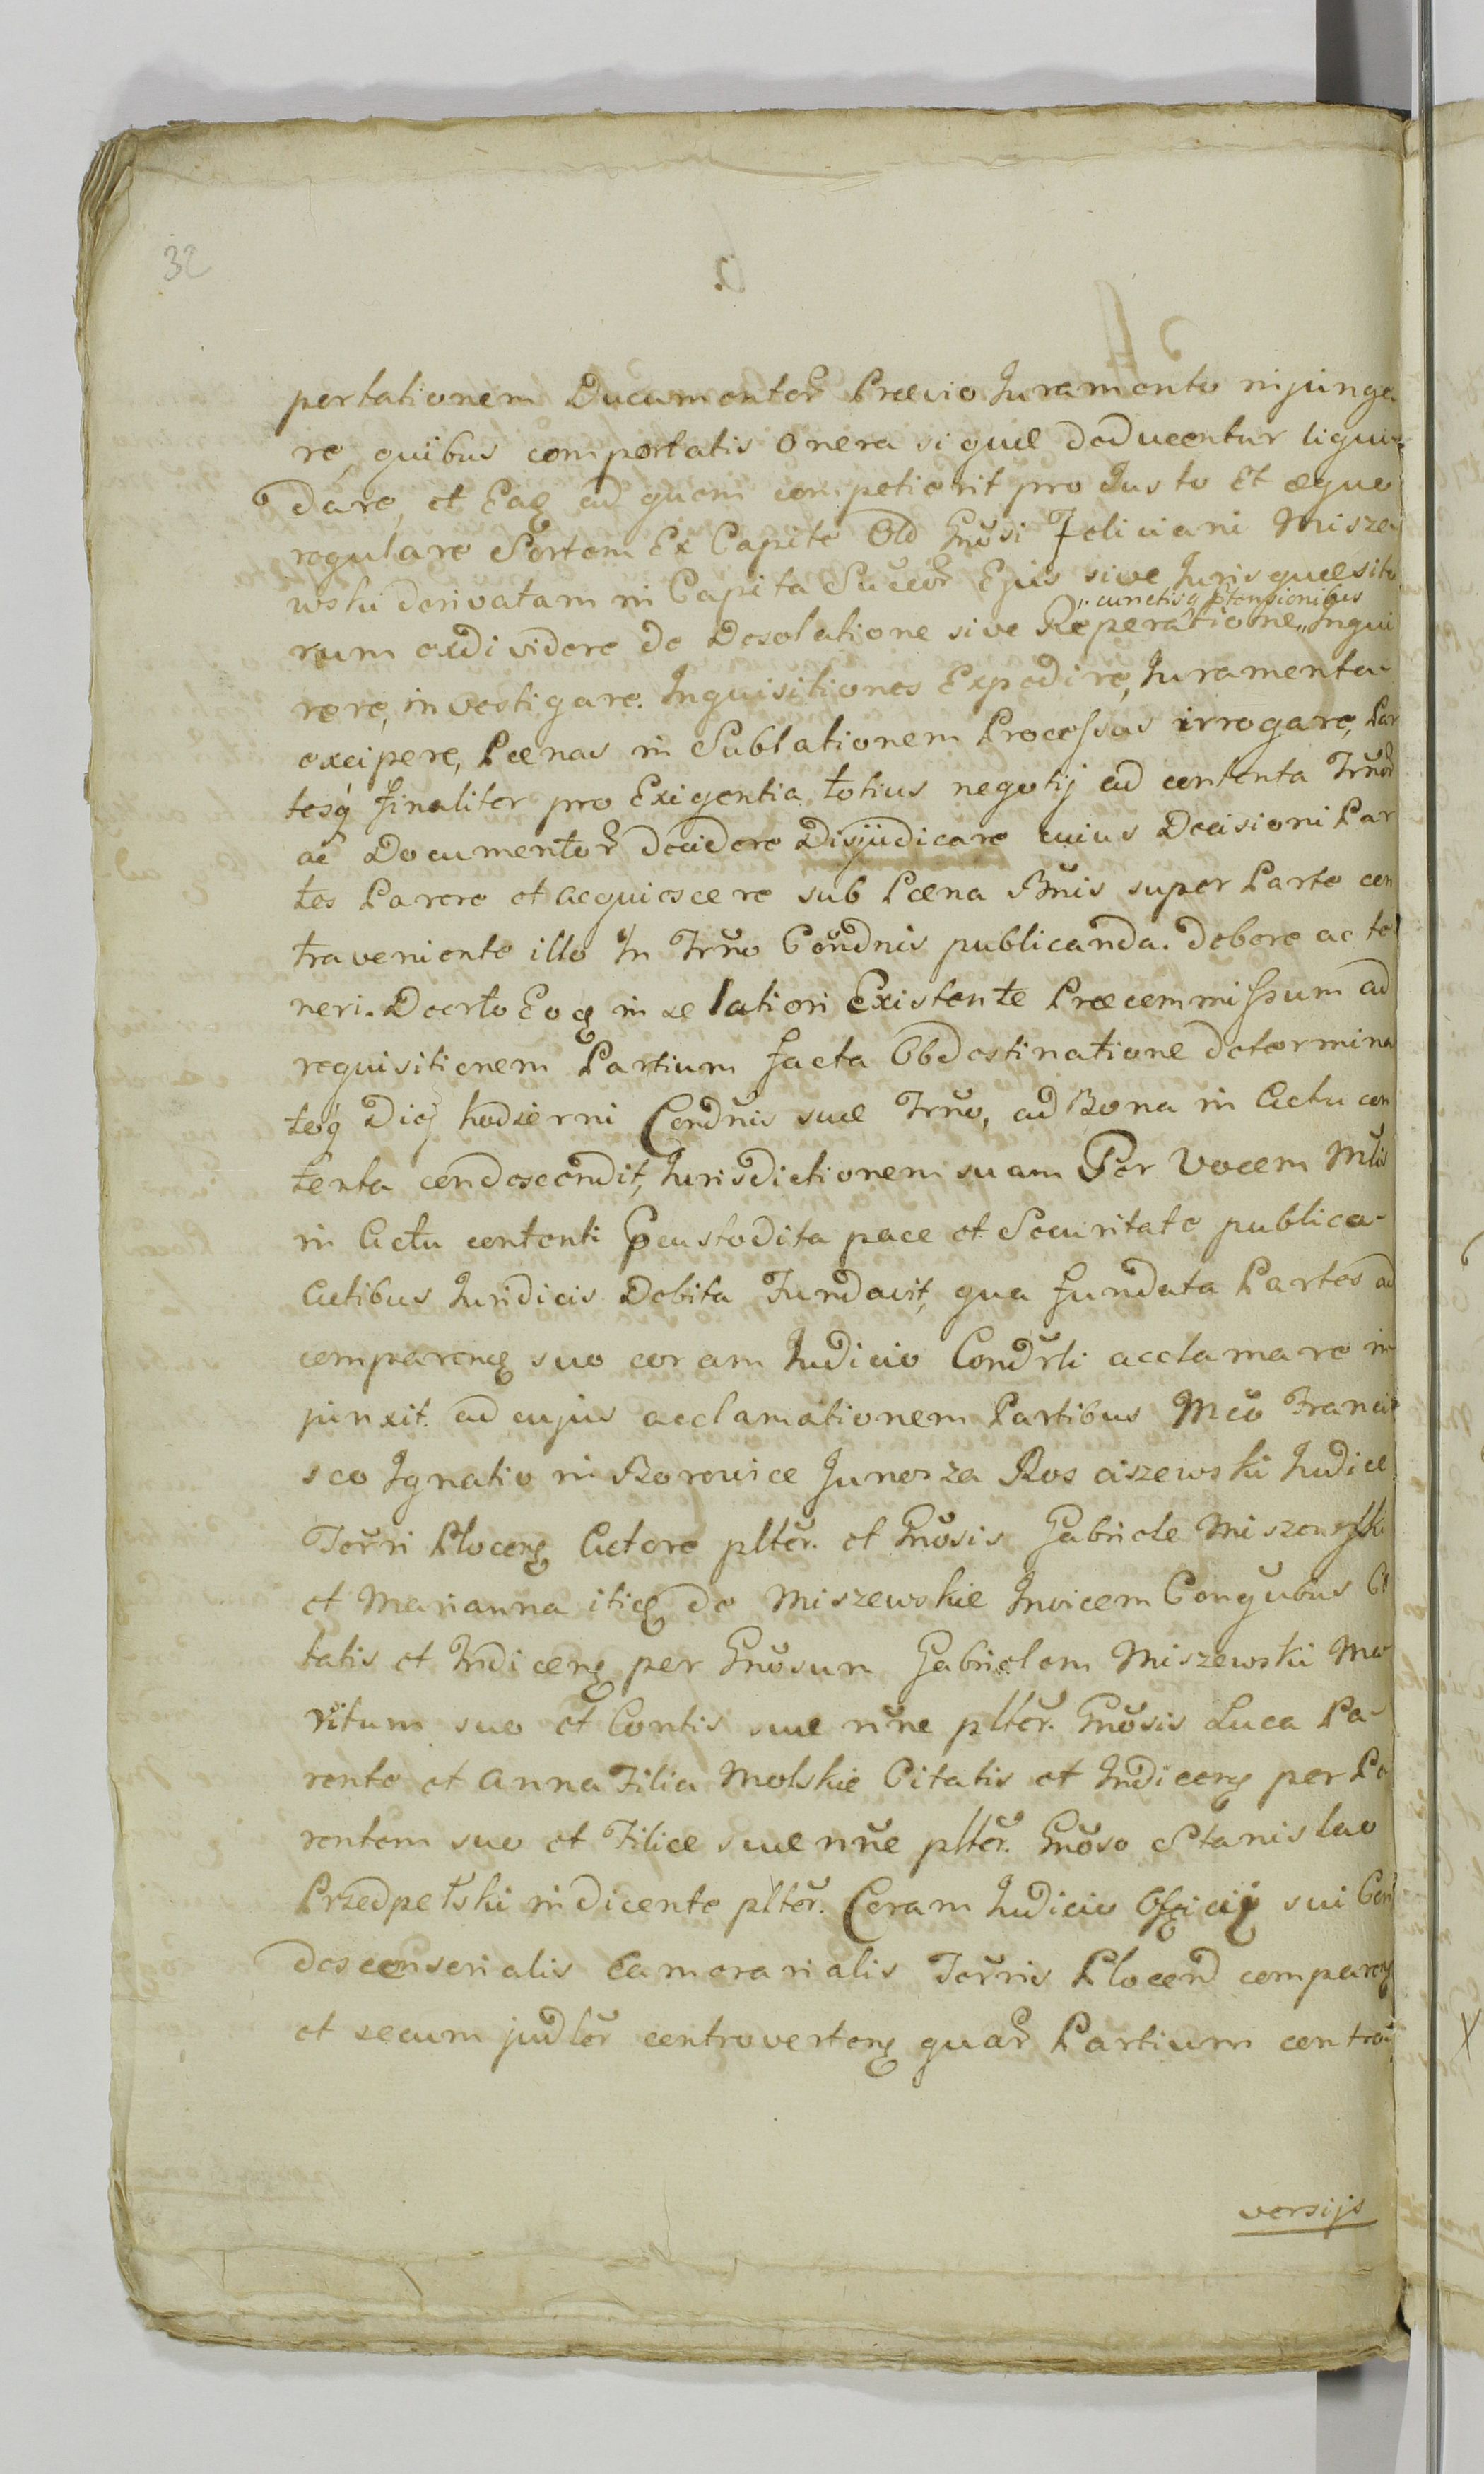 32
portationem Documentor̃ Prævio Juramento injunge
re, quibus comportatis onera si quæ deducentur liqui-
dare, et Eaq ad quem competierit pro Justo Et æquo
regulare Sortem Ex Capite Old Gnŏsi Feliciani Misze
wski derivatam in Capita Succor̃ Ejus sive Juris quæsito
rum exdividere de Desolatione sive Reperatione „ Inqui
„ cunctisq ptensionibus
rere, investigare. Inquisitiones Expedire, Juramenta
excipere, Pœnas in Sublationem Processus irrogare, Par
tesq́ finaliter pro Exigentia totius negotij ad contenta Trñor̃
ac Documentor̃ decidere Disjudicare cuius Decisioni Par
tes Parere et acquiescere sub Pœna Bñis super Parte con
traveniente illo In Trño Condñis publicanda. debere ac te
neri. Decrto Eoq in relatiōi Existente Præcommissum ad
requisitionem Partium facta Obdestinatione determina
teq́ Diej hodierni Condñis suæ Trño, ad Bona in Actu con
tenta condescendit, Jurisdictionem suam Per Vocem Mlis
in Actu contenti Pcustodita pace et Securitate publica
Actibus Juridicis Debita Fundavit, qua fundata Partes ad
comparenq suo coram Judicio Condrli acclamare in
junxit. ad cujus acclamationem Partibus Mcŏ Franci
sco Ignatio in Borowice Junosza Rosciszewski Judice
Terri Plocenq Actore plter. et Gnŏsis Gabriele Miszewski
et Marianna itieq de Miszewskie Invicem Congubus Ci
tatis et Indicenq per Gnŏsum Gabrielem Miszewski Ma
ritum suo et Contis suæ nñe plter. Gnŏsis Luca Pa-
rente et Anna Filia Molskie Citatis et Indicenq per Pa
rentem suo et Filiæ suæ nñe plter. Gnŏso Stanislao
Przedpełski indicente plter. Coram Judicio Officij sui Con
descenserialis Camerarialis Terris Plocend comparenq
et secum judler controvertenq quar̃ Partium contro
versijs